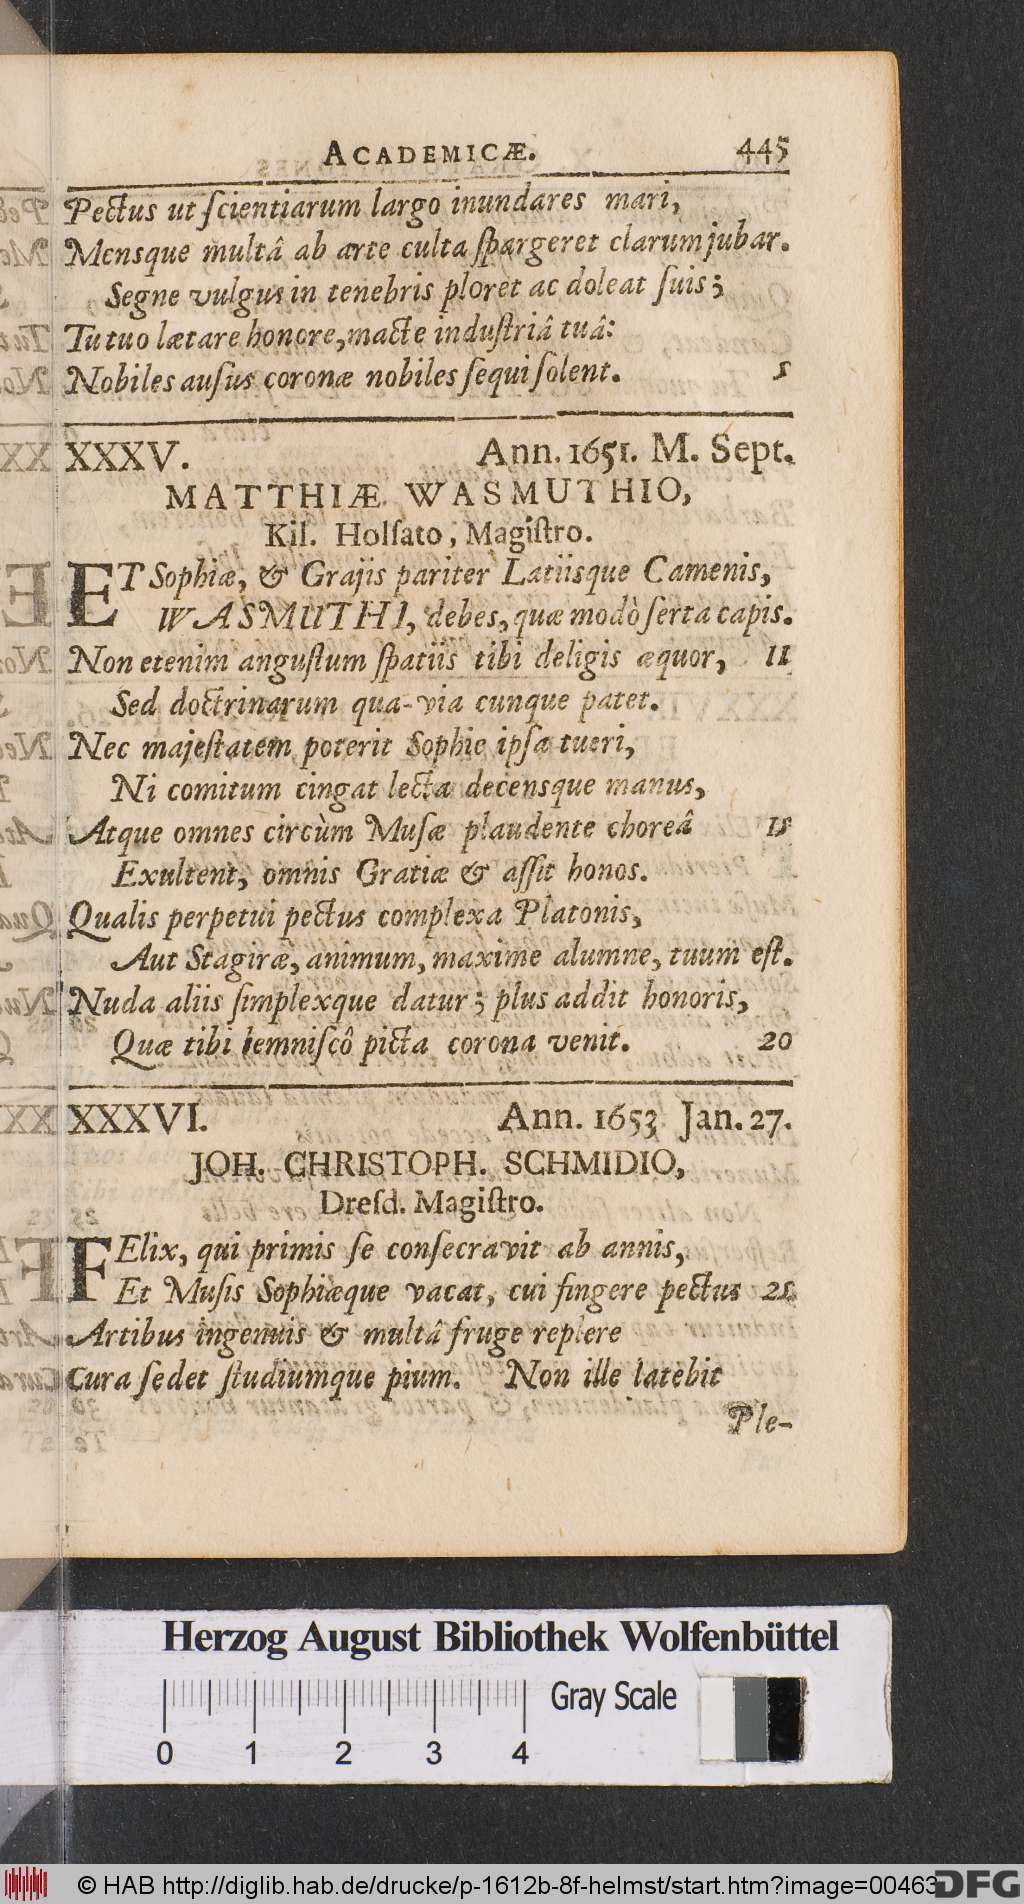 ACADEMICÆ. 445
Pectus ut ſcientiarum largo inundares mari,
Mensque multâ ab arte culta ſpargeret clarum jubar.
Segne vulgus in tenebris ploret ac doleat ſuis;
Tu tuo lætare honore, macte induſtriâ tuâ:
Nobiles auſus coronæ nobiles ſequi ſolent. 5
XXXV. Ann. 1651. M. Sept.
MATTHIÆ WASMUTHIO,
Kil. Holſato, Magiſtro.
ET Sophiæ, & Grajis pariter Latiisque Camenis,
WASMUTHI, debes, quæ modò ſerta capis.
Non etenim anguſtum ſpatiis tibi deligis æquor, 11
Sed doctrinarum qua-via cunque patet.
Nec majeſtatem poterit Sophie ipſa tueri,
Ni comitum cingat lecta decensque manus,
Atque omnes circùm Muſæ plaudente choreâ 15
Exultent, omnis Gratiæ & aſſit honos.
Qualis perpetui pectus complexa Platonis,
Aut Stagiræ, animum, maxime alumne, tuum eſt.
Nuda aliis ſimplexque datur; plus addit honoris,
Quæ tibi lemniſcô picta corona venit. 20
XXXVI. Ann. 1653 Jan. 27.
JOH. CHRISTOPH. SCHMIDIO,
Dreſd. Magiſtro.
FElix, qui primis ſe conſecravit ab annis,
Et Muſis Sophiæque vacat, cui fingere pectus 25
Artibus ingenuis & multâ fruge replere
Cura ſedet ſtudiumque pium. Non ille latebit
Ple-
Herzog August Bibliothek Wolfenbüttel
Gray Scale
0 1 2 3 4
© HAB http://diglib.hab.de/drucke/p-1612b-8f-helmst/start.htm?image=00463
DFG